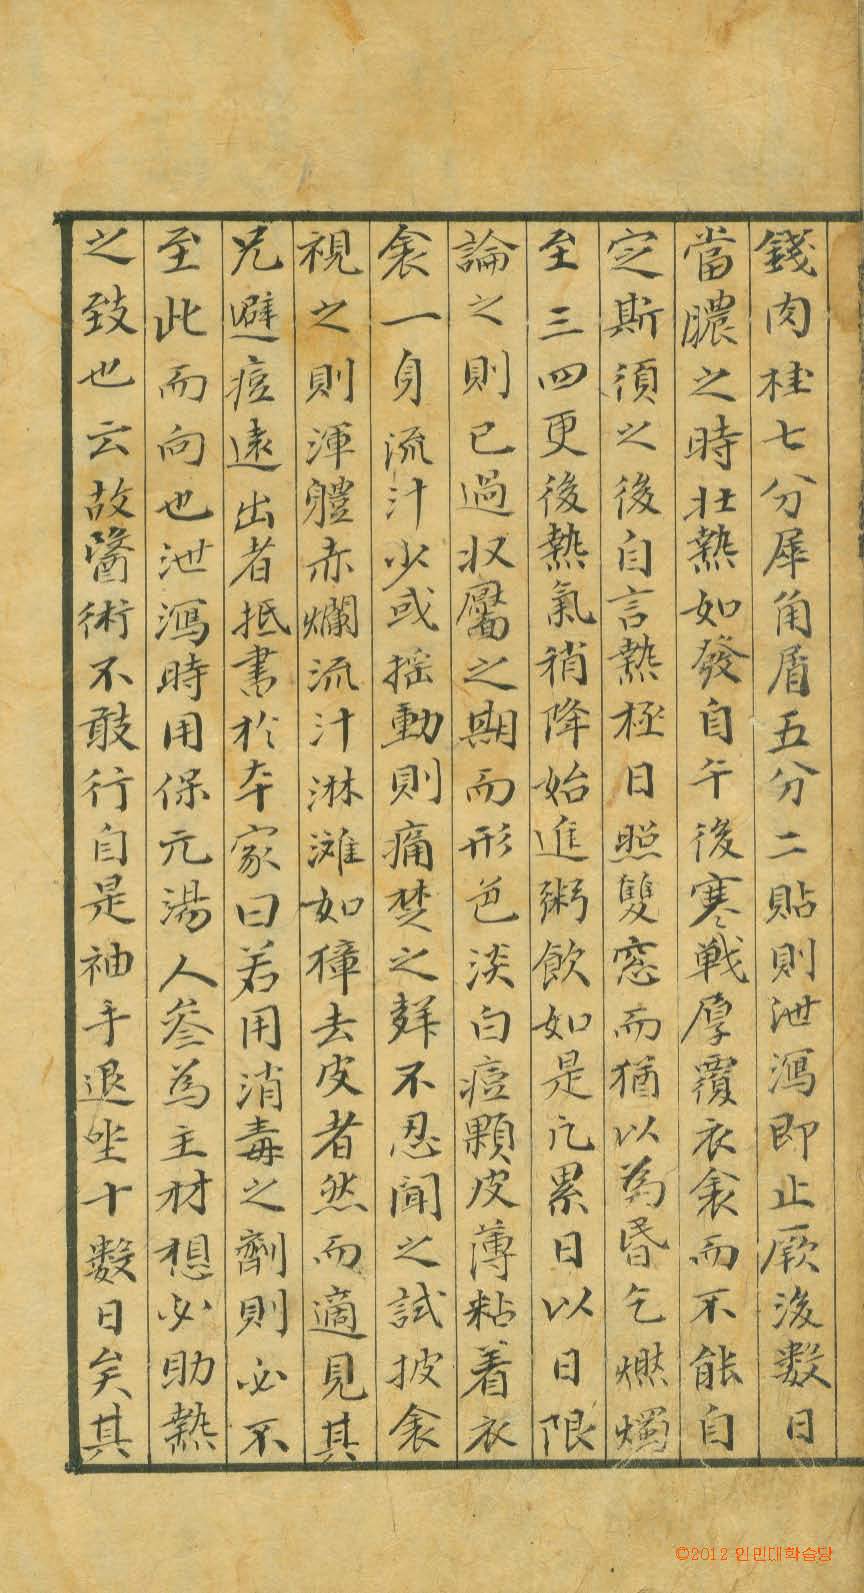 錢肉桂七分犀角眉五分二貼則泄瀉即止厥後數日
當膿之時壯熱如發自午後寒戰厚覆衣衾而不能自
定斯須之後自言熱極日照雙窓而猶以為昏乞燃燭
至三四更後熱氣稍降始進粥飲如是凡累日以日限
論之則已過收靨之期而形色淡白痘顆皮薄粘着衣
衾一身流汁少或搖動則痛楚之聲不忍聞之試披衾
視之則渾體赤爛流汁淋灘如獐去皮者然而適見其
兄避痘遠出者抵書於本家曰若用消毒之劑則必不
至此而向也泄瀉時用保元湯人參為主材想必助熱
之致也云故醫術不敢行自是袖手退坐十數日矣其
©2012 인민대학습당